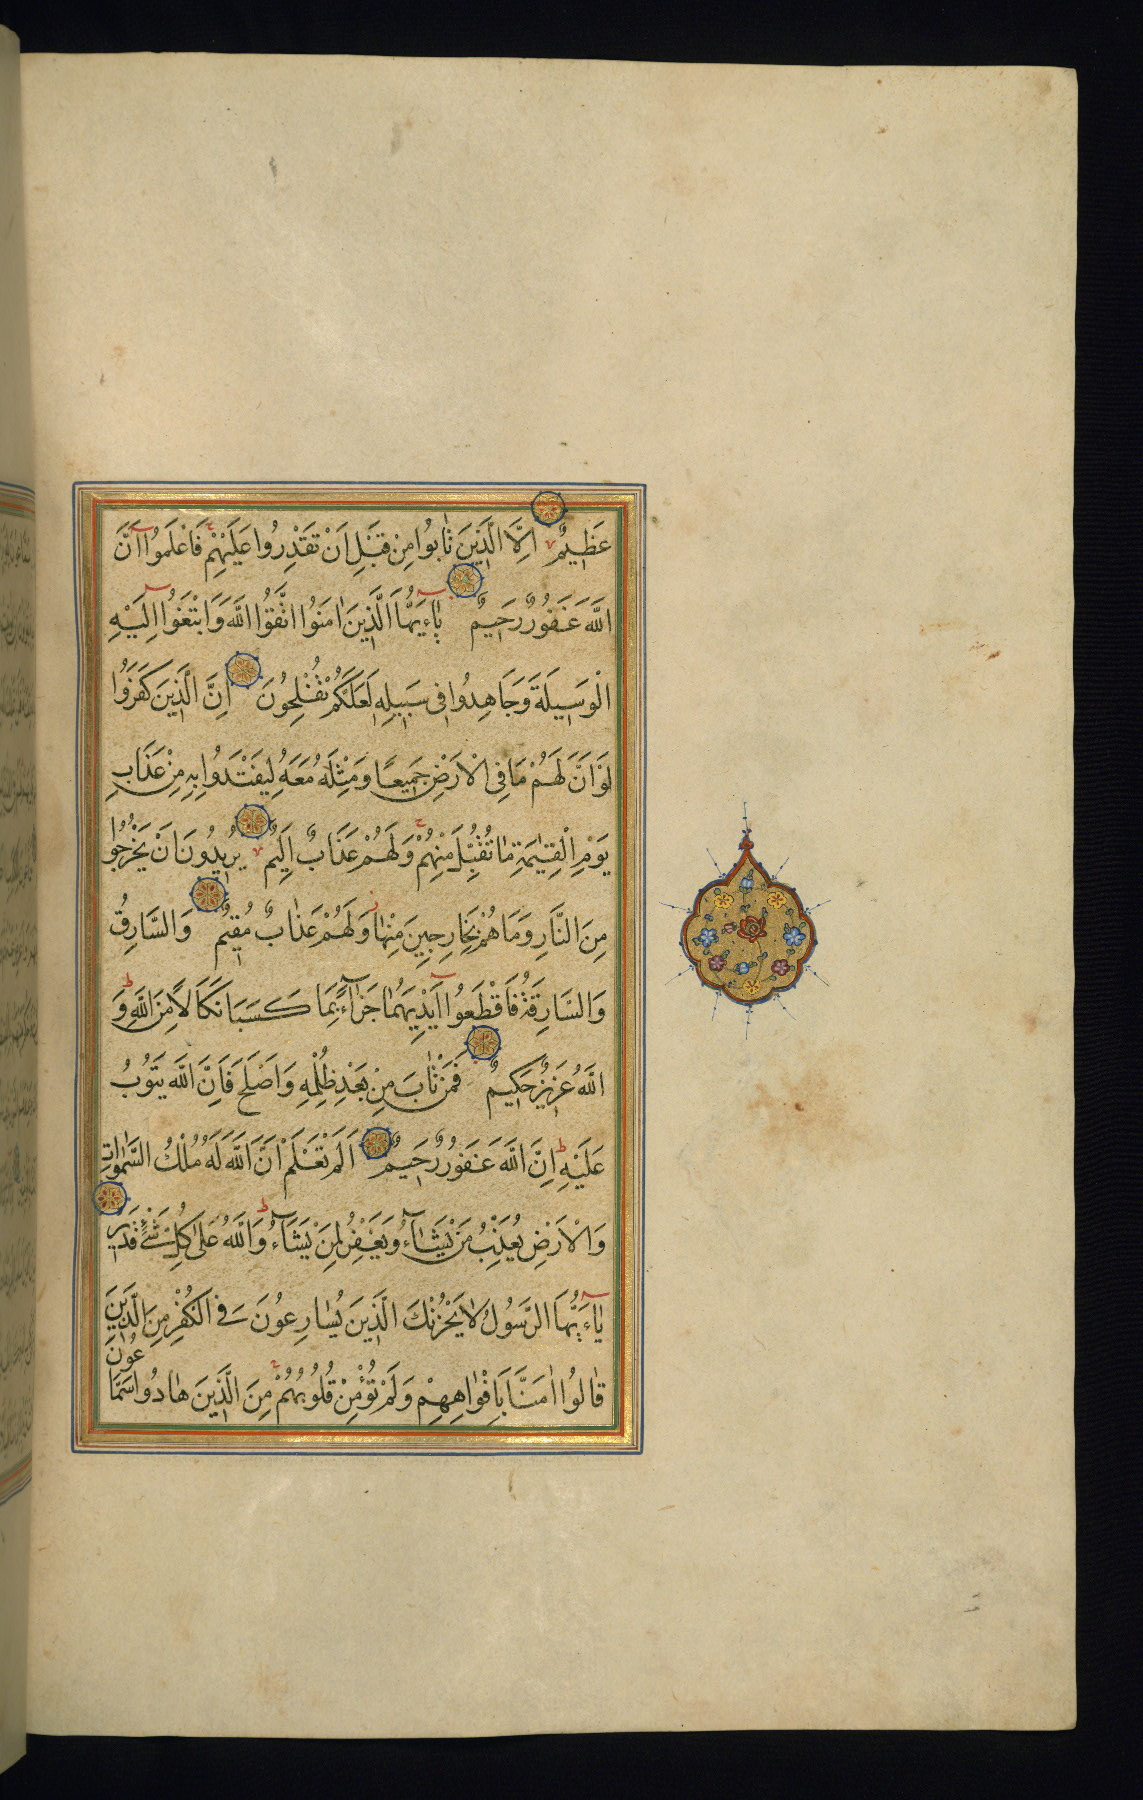 عَظِيمٌ اِلَّا الَّذِينَ تَابُوا مِنْ قَبْلِ اَنْ تَقْدِرُوا عَلَيْهِمْ فَاعْلَمُوا اَنَّ
اللّٰهَ غَفُورٌ رَحِيمٌ يَاءَيُّهَا الَّذِينَ اٰمَنُوا اتَّقُوا اللّٰهَ وَابْتَغُوا اِلَيْهِ
الْوَسِيلَةَ وَجَاهِدُوا فِى سَبِيلِهِ لَعَلَّكُمْ تُفْلِحُونَ اِنَّ الَّذِينَ كَفَرُوا
لَوْ اَنَّ لَهُمْ مَا فِى الْاَرْضِ جَمِيعًا وَمِثْلَهُ مَعَهُ لِيَفْتَدُوا بِهِ مِنْ عَذَابِ
يَوْمِ الْقِيٰمَةِ مَا تُقُبِّلَ مِنْهُمْ وَلَهُمْ عَذَابٌ اَلِيمٌ يُرِيدُونَ اَنْ يَخْرُجُوا
مِنَ النَّارِ وَمَا هُمْ بِخَارِجِينَ مِنْهَا وَلَهُمْ عَذَابٌ مُقِيمٌ وَالسَّارِقُ
وَالسَّارِقَةُ فَاقْطَعُوا اَيْدِيَهُمَا جَزَاءً بِمَا كَسَبَا نَكَالًا مِنَ اللّٰهِ وَ
اللّٰهُ عَزِيزٌ حَكِيمٌ فَمَنْ تَابَ مِنْ بَعْدِ ظُلْمِهِ وَاَصْلَحَ فَاِنَّ اللّٰهَ يَتُوبُ
عَلَيْهِ اِنَّ اللّٰهَ غَفُورٌ رَحِيمٌ اَلَمْ تَعْلَمْ اَنَّ اللّٰهَ لَهُ مُلْكُ السَّمٰوَاتِ
وَالْاَرْضِ يُعَذِّبُ مَنْ يَشَاءُ وَيَغْفِرُ لِمَنْ يَشَاءُ وَاللّٰهُ عَلٰى كُلِّ شَىْءٍ قَدِيرٌ
يَاءَيُّهَا الرَّسُولُ لَا يَحْزُنْكَ الَّذِينَ يُسَارِعُونَ فِى الْكُفْرِ مِنَ الَّذِينَ
قَالُوا اٰمَنَّا بِاَفْوَاهِهِمْ وَلَمْ تُؤْمِنْ قُلُوبُهُمْ مِنَ الَّذِينَ هَادُوا سَمَّاعُونَ